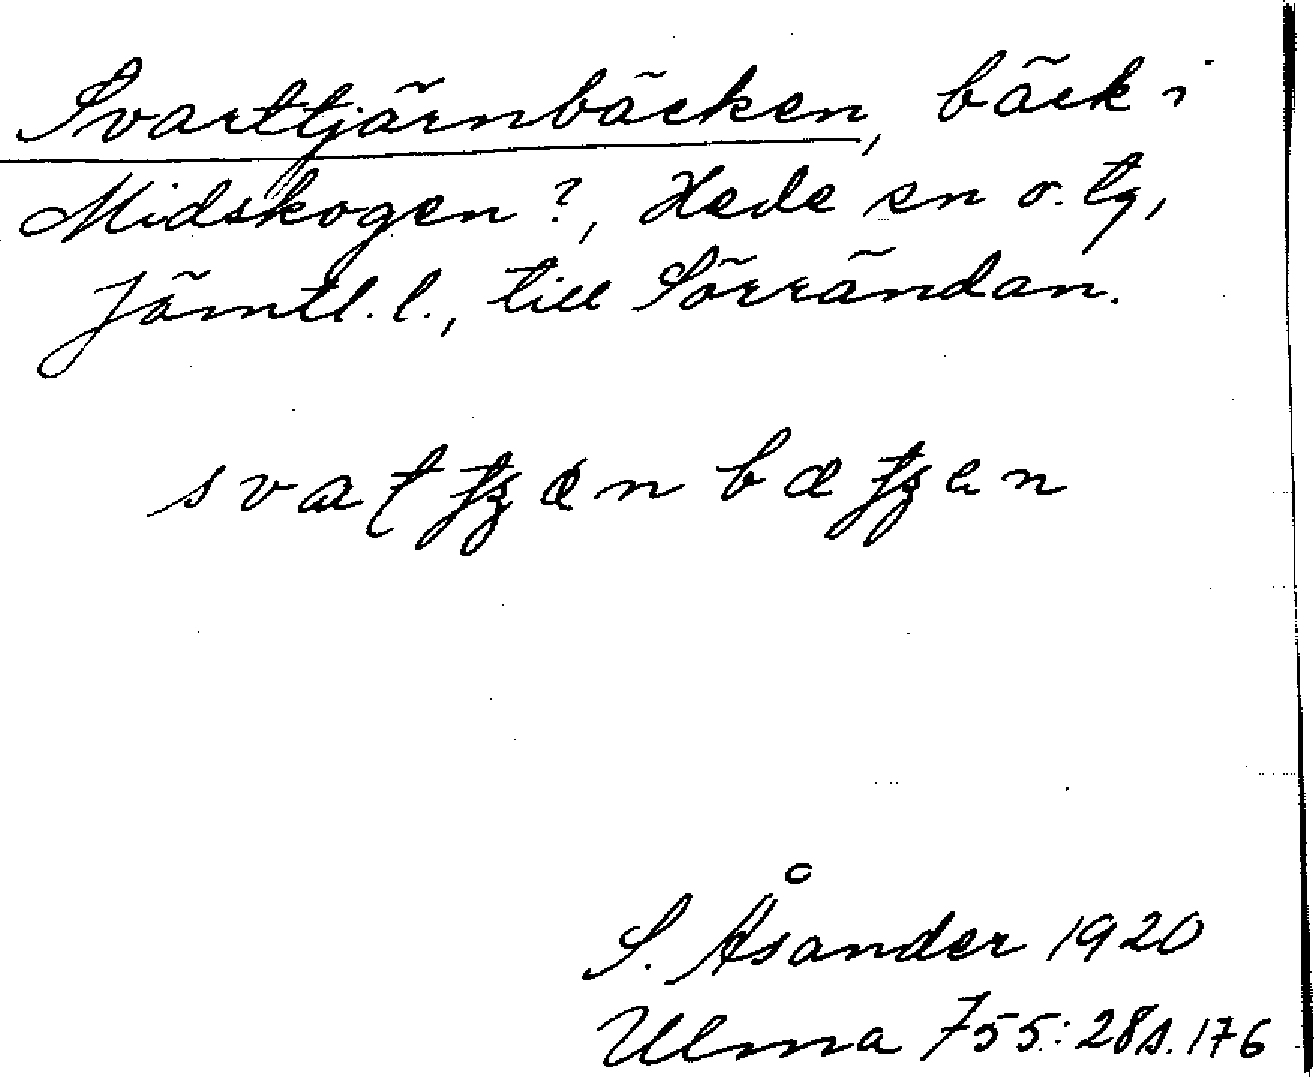 Svarttjärnbäcken, bäck i
Midskogen?, Hede sn o. tg,
Jämtl. l., till Sörrändan.
S. Åsander 1920
Ulma 755:28 s. 176